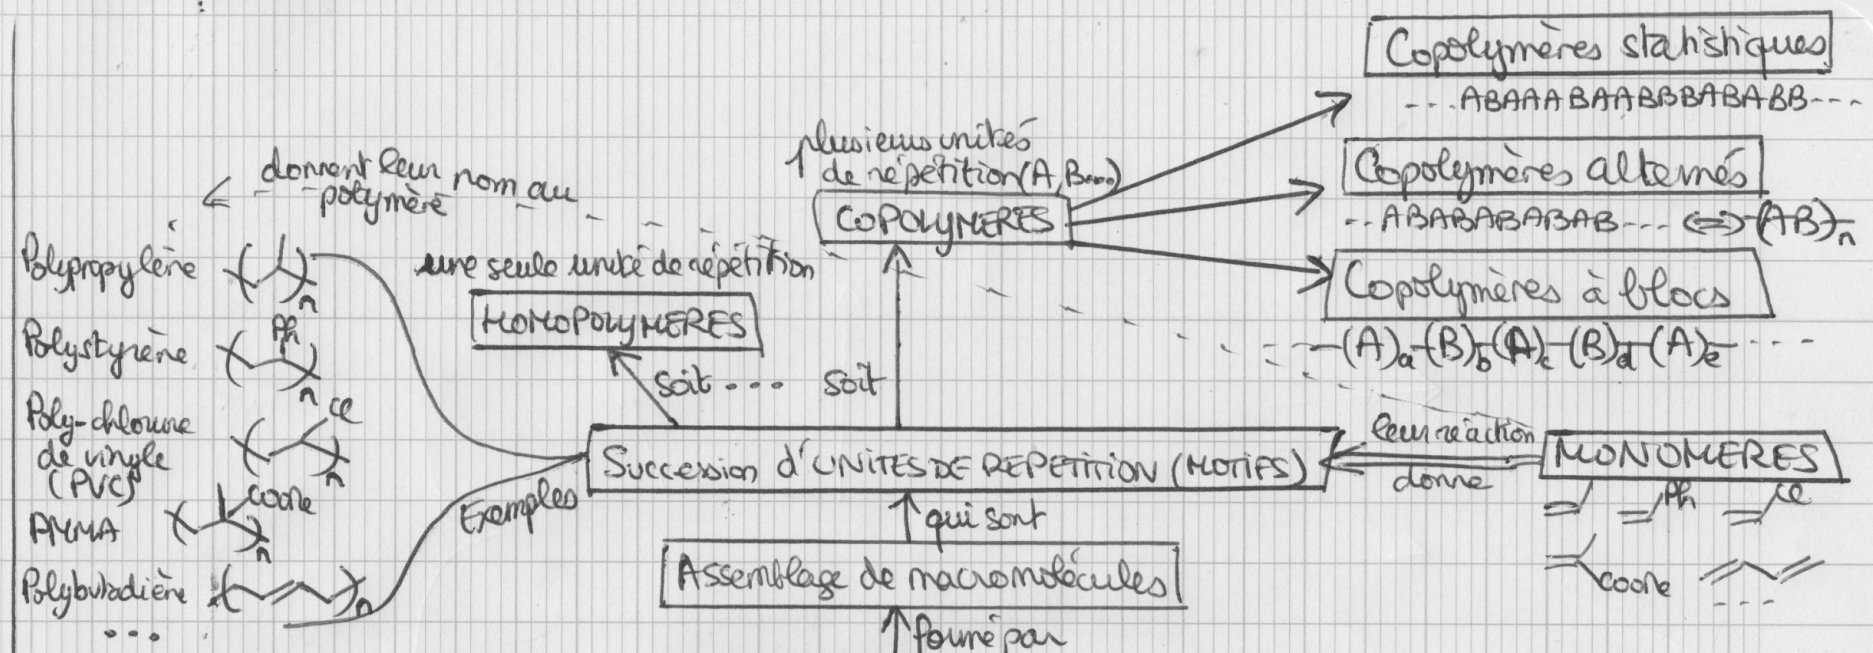 Copolymères statistiques
---ABAAABAABBBABABB---
plusieurs unités
de répétition (A, B...)
COPOLYMERES
Copolymères alternés
--ABABABABAB--- ⇔ (AB)n
Copolymères à blocs
-(A)a-(B)b-(A)c-(B)d-(A)e-----
donnent leur nom au
polymère
une seule unité de répétition
HOMOPOLYMERES
soit ... soit
Polypropylène
n
Polystyrène
Ph
n
Poly-chlorure
de vinyle
(PVC)
Cl
n
PMMA
COOMe
n
Polybutadiène
n
...
Exemples
Succession d'UNITES DE REPETITION (MOTIFS)
leur réaction
donne
MONOMERES
Ph
Cl
COOMe
---
qui sont
Assemblage de macromolécules
formé par